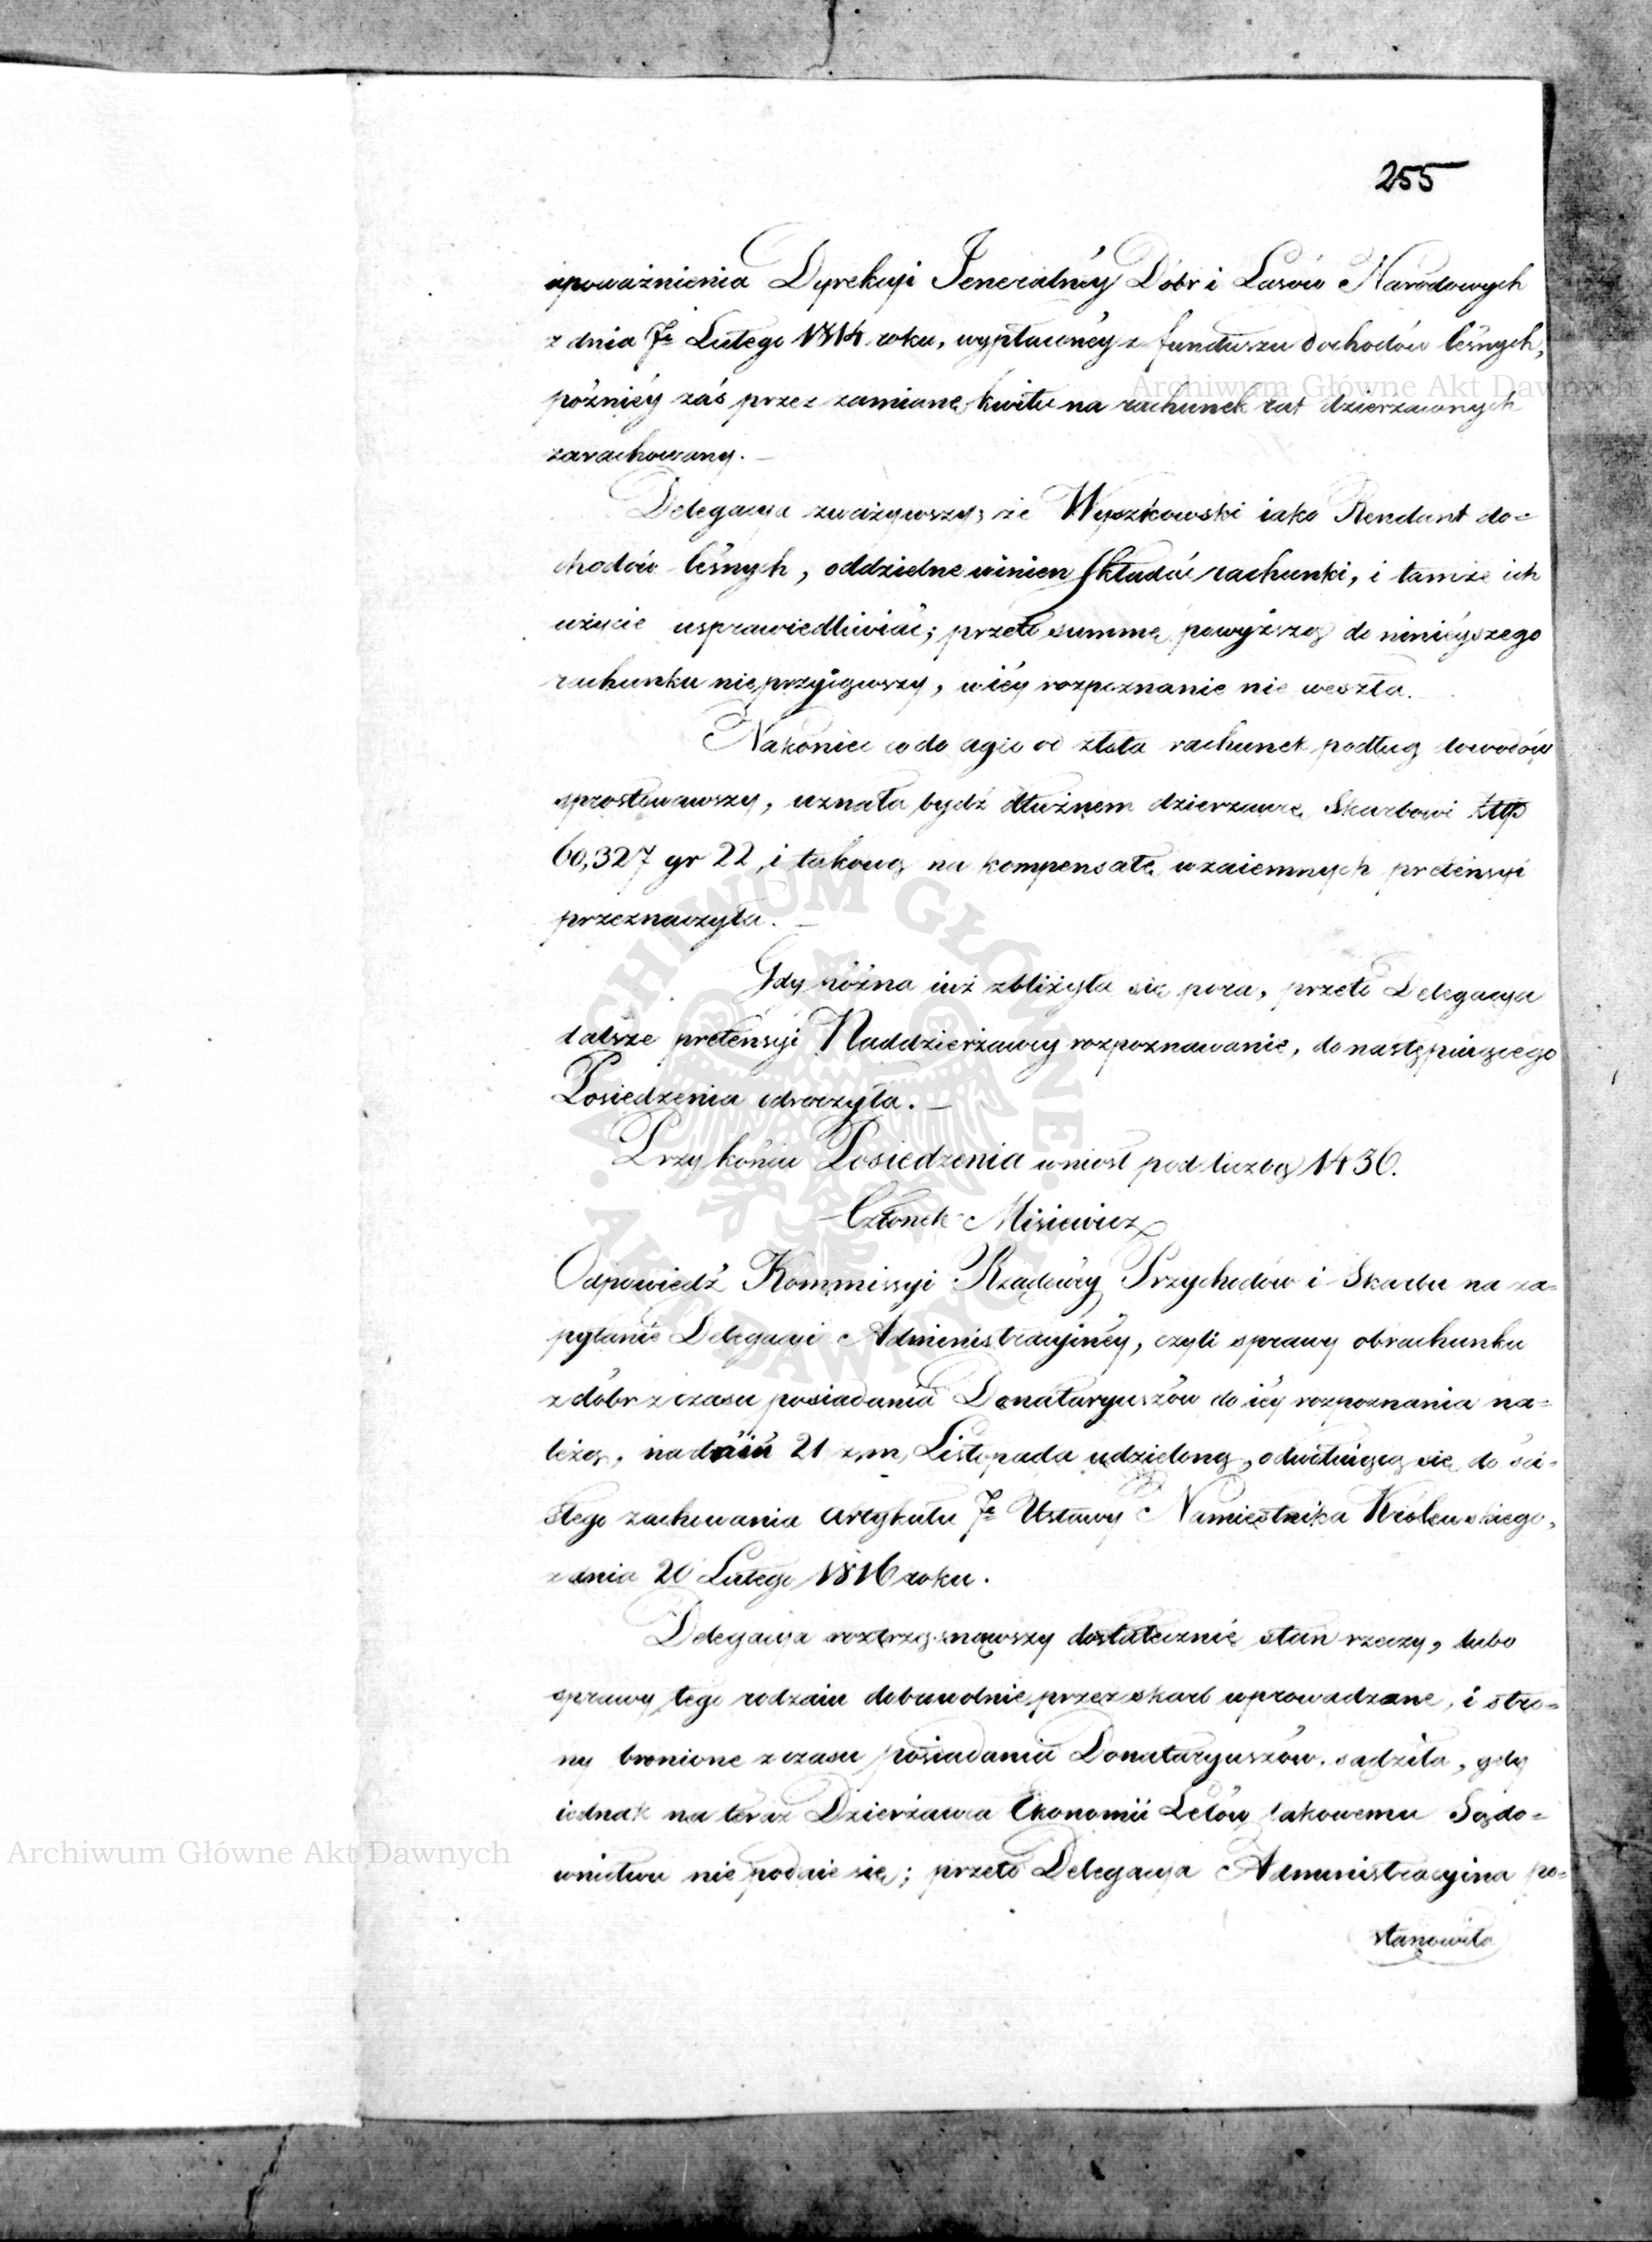 255
upoważnienia Dyrekcyi Jeneralnéy Dóbr i Lasów Narodowych
z dnia 7º Lutego 1814 roku, wypłaconéy z funduszu dochodów leśnych,
późniéy zaś przez zamianę kwitu na rachunek rat dzierzawnych
zarachowany. —
Delegacya zważywszy, że Wyszkowski iako Rendant do=
chodów leśnych, oddzielne winien składać rachunki, i tamże ich
użycie usprawiedliwiać; przeto summę powyższą do ninieyszego
rachunku nieprzyiąwszy, w iéy rozpoznanie nie weszła. —
Nakoniec co do agio od złota rachunek podług dowodów
sprostowawszy, uznała bydź dłużnem dzierzawcę Skarbowi złtp
60,327 gr 22 i takową na kompensatę wzaiemnych pretensyi
przeznaczyła. —
Gdy późna iuż zbliżyła się pora, przeto Delegacya
dalsze pretensyi Naddzierżawcy rozpoznawanie, do następuiącego
Posiedzenia odroczyła. —
Przy końcu Posiedzenia wniosł pod liczbą 1436.
Członek Misiewicz
Odpowiedź Kommissyi Rządowéy Przychodów i Skarbu na za=
pytanie Delegacyi Administracyinéy, czyli sprawy obrachunku
z dóbr z czasu posiadania Donataryuszów do iéy rozpoznania na=
leżą, na dniu 21 z. m. Listopada udzieloną, odwołuiącą się do ści=
słego zachowania artykułu 7º Ustawy Namiestnika Królewskiego,
z dnia 20 Lutego 1816 roku.
Delegacya roztrząsnąwszy dostatecznie stan rzeczy, lubo
sprawy tego rodzaiu dobrowolnie przez skarb wprowadzane, i stro=
ny bronione z czasu posiadania Donataryuszów. sądziła, gdy
iednak na teraz Dzierżawca Ekonomii Lelów takowemu Sądo=
wnictwu nie poddaie się; przeto Delegacya Administracyina po=
stanowiła
Archiwum Główne Akt Dawnych
Archiwum Główne Akt Dawnych
ARCHIWUM GŁÓWNE AKT DAWNYCH